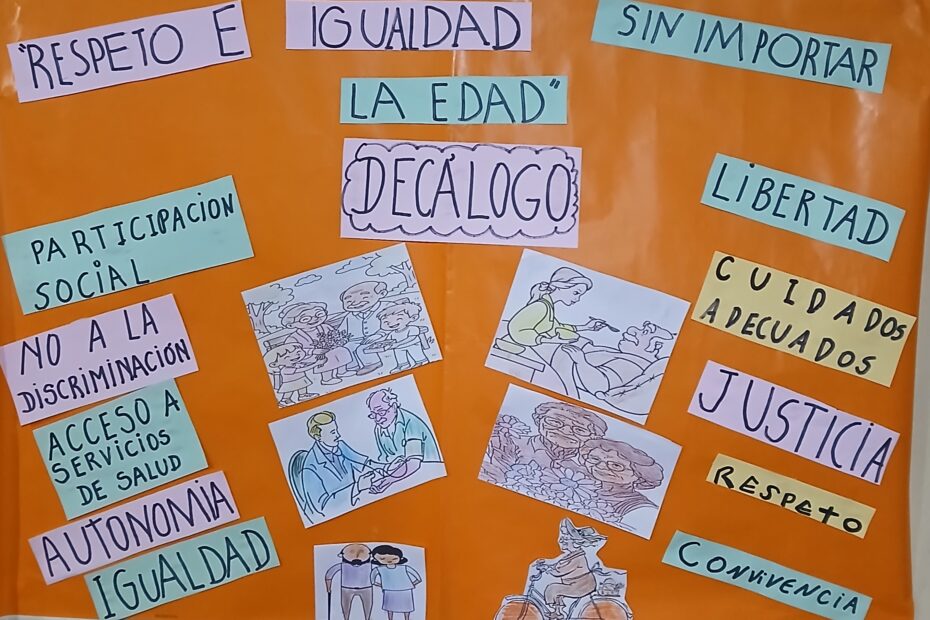 "RESPETO E IGUALDAD SIN IMPORTAR
LA EDAD"
DECÁLOGO
PARTICIPACION
SOCIAL
NO A LA
DISCRIMINACIÓN
ACCESO A
SERVICIOS
DE SALUD
AUTONOMIA
IGUALDAD
LIBERTAD
CUIDADOS
ADECUADOS
JUSTICIA
RESPETO
CONVIVENCIA